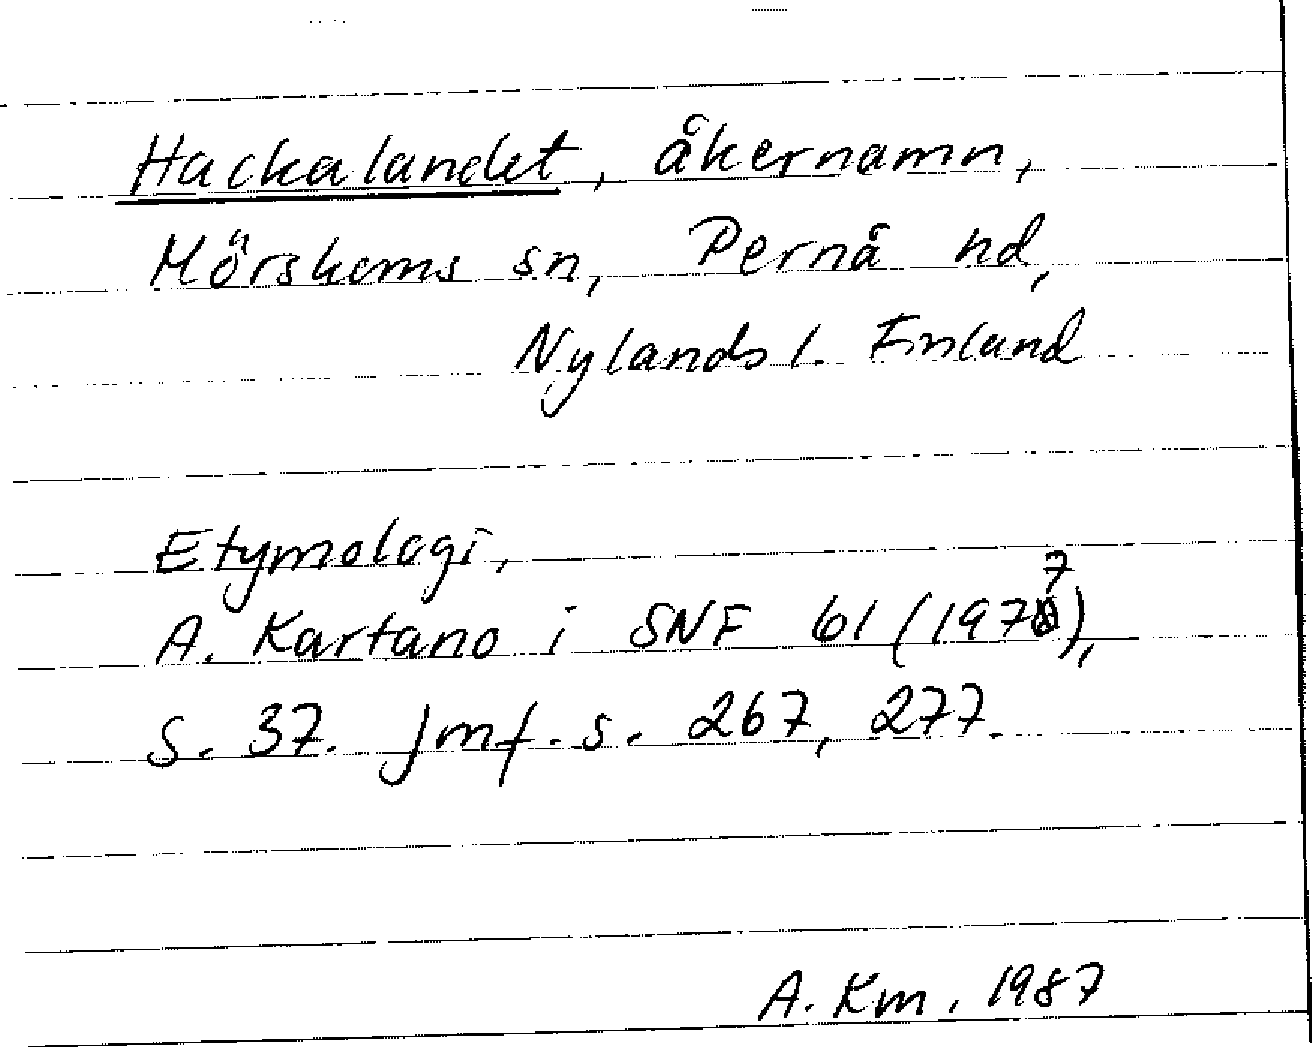 Hackalandet, åkernamn,
Mörskoms sn, Pernå hd,
Nylands l. Finland
Etymologi,
A. Kartano i SNF 61 (1977),
s. 37. Jmf. s. 267, 277.
A. Km. 1987